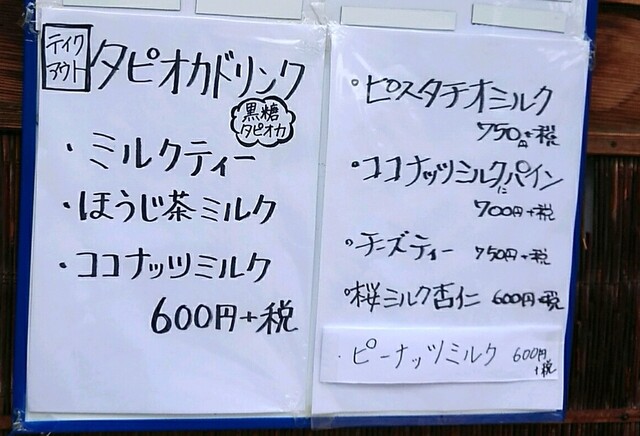 テイク
アウト
タピオカドリンク
黒糖
タピオカ
・ミルクティー
・ほうじ茶ミルク
・ココナッツミルク
600円+税
・ピスタチオミルク
750円+税
・ココナッツミルクパイン
に
700円+税
・チーズティー 750円+税
・桜ミルク杏仁 600円+税
・ピーナッツミルク 600円
+税